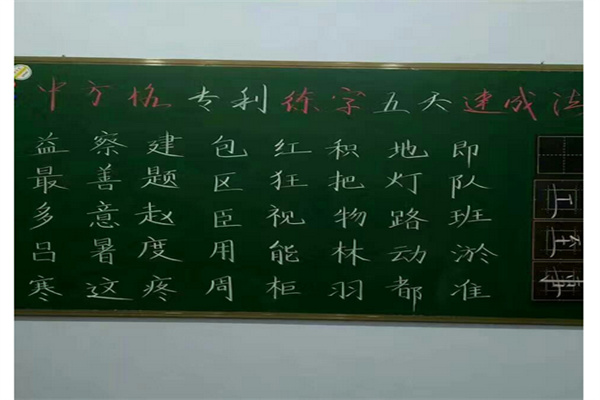 中方格专利练字五天速成法
益察建包红积地即
最善题区狂把灯队
多意赵臣视物路班
吕暑度用能林动淤
寒这疼周柜羽都准